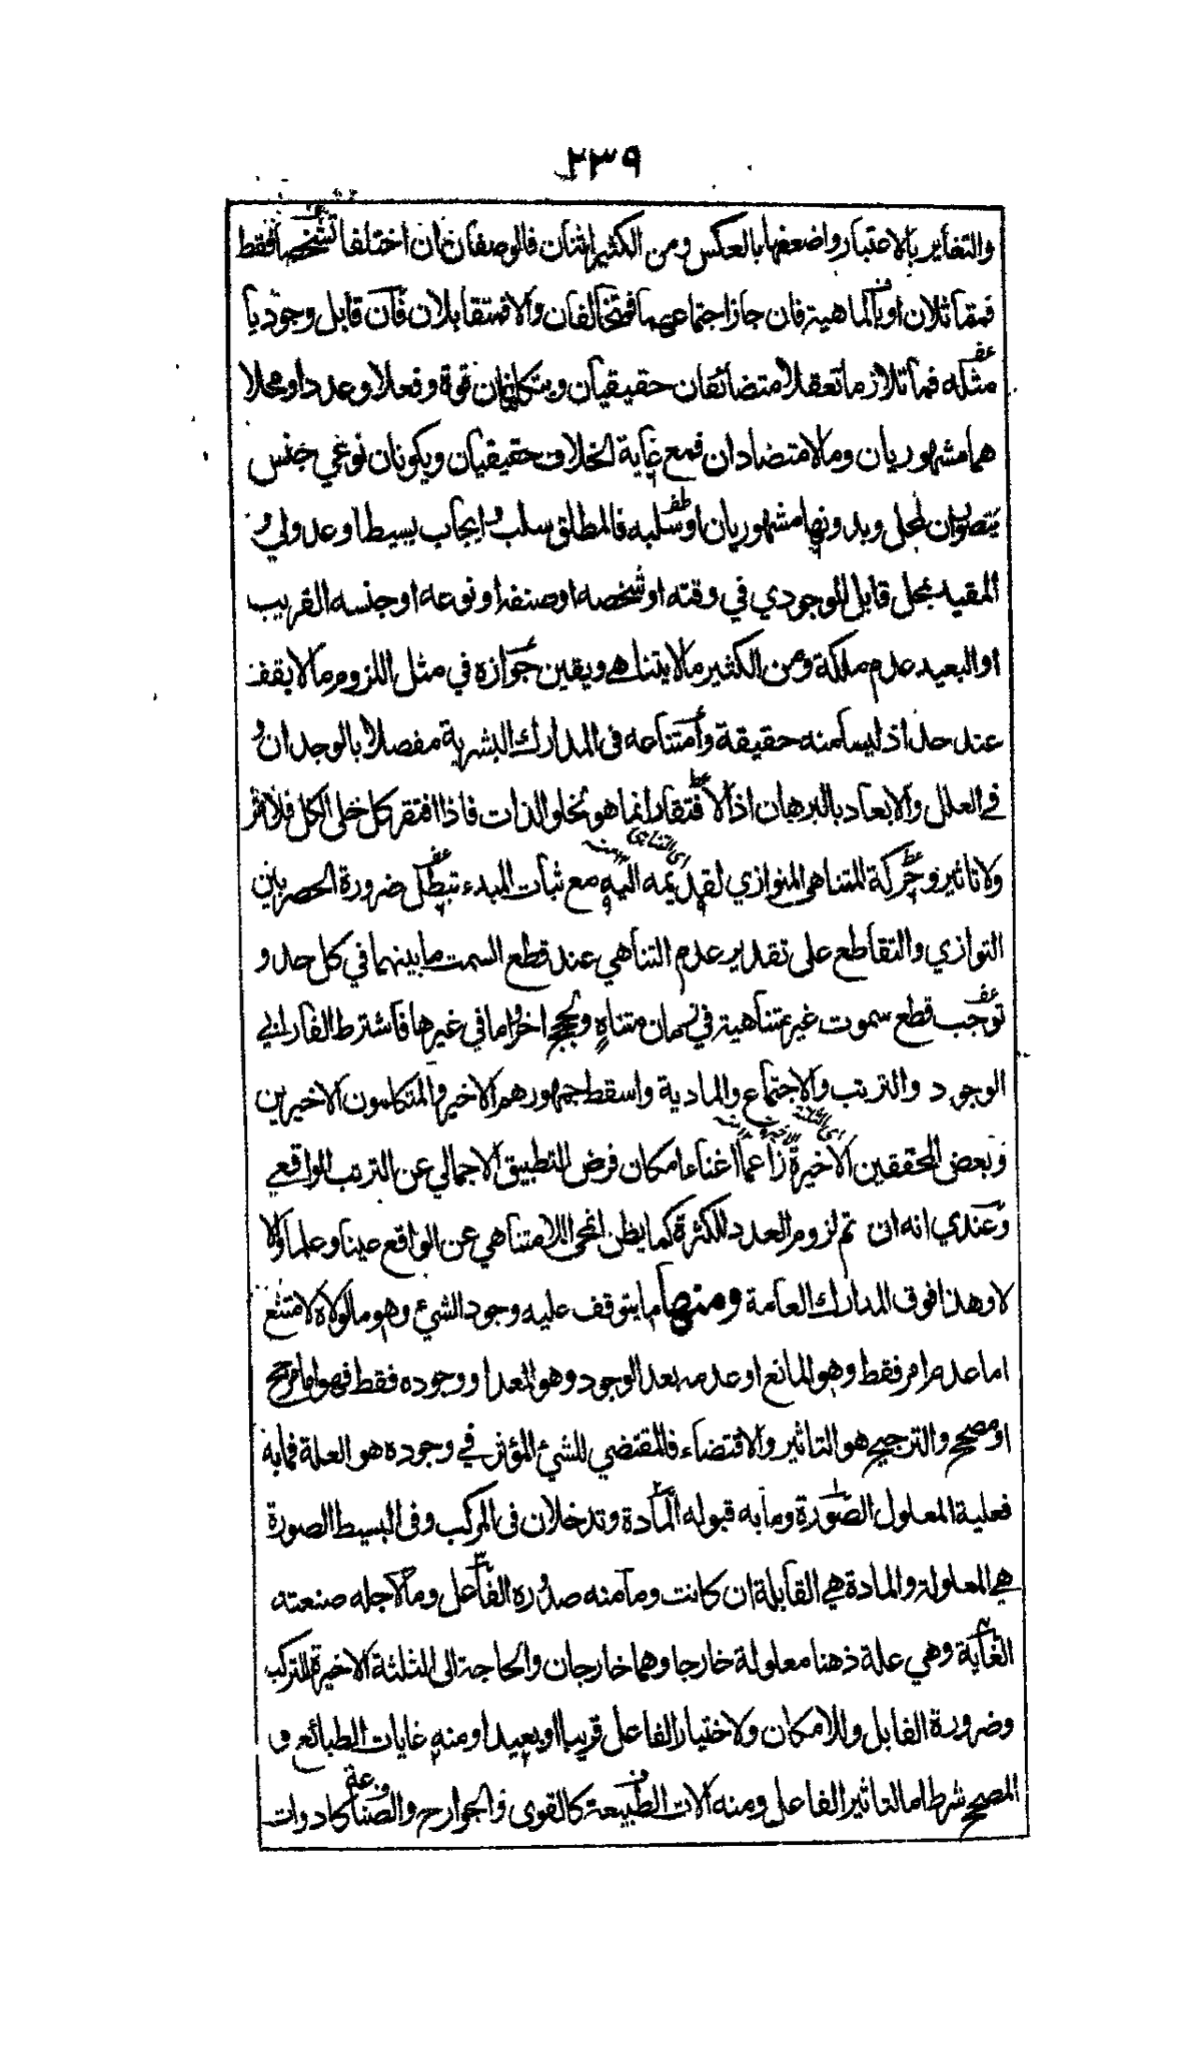 ٢٣٩
والتغاير بالاعتبار واضعفها بالعكس ومن الكثير اثنان فالوصفان ان اختلفا تشخصا فقط
فمتماثلان او بالماهية فان جاز اجتماعهما فمتخالفان والا فمتقابلان فان قابل وجوديا
مثله فما تلازما تعقلا متضائفان حقيقيان ويتكافيان قوة وفعلا وعددا ومحلا
هما مشهوريان وما لا متضادان فمع غاية الخلاف حقيقيان ويكونان نوعي جنس
يتصوران لمحل وبدونها مشهوريان او سلبه فالمطلق سلب وايجاب بسيطا وعدولي و
المقيد بمحل قابل للوجودي في وقته او شخصه او صنفه او نوعه او جنسه القريب
او البعيد عدم ملكة ومن الكثير ما لا يتناهى ويقين جوازه في مثل اللزوم ما لا يقف
عند حد اذ ليسا منه حقيقة وامتناعه فى المدارك البشرية مفصلا بالوجدان و
في العلل والابعاد بالبرهان اذ الافتقار انما هو لخلو الذات فاذا افتقر كل خلى الكل فلا اثر
ولا تاثير وحركة المتناهى الموازي لقديمه اليه مع ثبات المبدء تبطل ضرورة الحصر بين
اى التناهى ١٢ منه
التوازي والتقاطع على تقدير عدم التناهي عند قطع السمت ما بينهما في كل حد و
توجب قطع سموت غير متناهية في زمان متناهٍ ولحجج اخر واما في غيرها فاشترط الفارابي
الوجود والترتب والاجتماع والمادية واسقط جمهورهم الاخير والمتكلمون الاخيرين
وبعض المحققين الاخيرة زاعما اغناء امكان فرض التطبيق الاجمالي عن الترتب الواقعي
اى الثلثة الاخيرة ١٢ منه
وعندي انه ان تم لزوم العدد للكثرة كما يظن انمحى اللامتناهي عن الواقع عينا وعلما والا
لا وهذا فوق المدارك العامة ومنها ما يتوقف عليه وجود الشيء وهو ما لولاه لامتنع
اما عدم امر فقط وهو المانع او عدمه بعد الوجود وهو المعد او وجوده فقط فهو اما مرجح
او مصحح والترجيح هو التاثير والاقتضاء فالمقتضي للشيء المؤثر في وجوده هو العلة فما به
فعلية المعلول الصورة وما به قبوله المادة وتدخلان فى المركب وفى البسيط الصورة
هي المعلولة والمادة هي القابلة ان كانت وما منه صدوره الفاعل وما لاجله صنعته
الغاية وهي علة ذهنا معلولة خارجا وهما خارجان والحاجة الى الثلثة الاخيرة للتركب
وضرورة القابل وللامكان ولاختيار الفاعل قريبا او بعيدا ومنه غايات الطبائع و
المصحح شرط اما لتاثير الفاعل ومنه آلات الطبيعة كالقوى والجوارح والصناعة كادوات